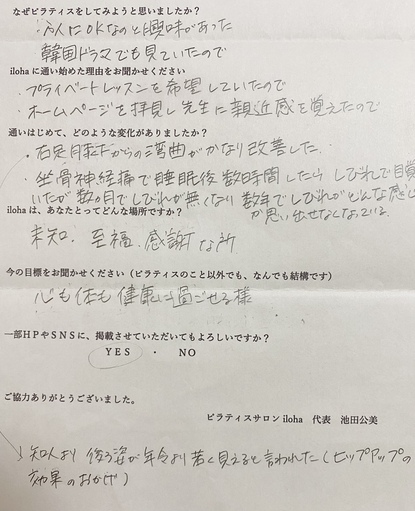 なぜピラティスをしてみようと思いましたか？
OKなのと興味があった
韓国ドラマでも見ていたので
ilohaに通い始めた理由をお聞かせください
・プライベートレッスンを希望していたので
・ホームページを拝見し先生に親近感を覚えたので
通いはじめて、どのような変化がありましたか？
からの湾曲がかなり改善した。
・坐骨神経痛で睡眠後数時間したら しびれで目覚
いたが数ヶ月でしびれが無くなり 数年でしびれがどんな感じ
か思い出せなくなっている。
ilohaは、あなたとってどんな場所ですか？
未知、至福、感謝な所
今の目標をお聞かせください（ピラティスのこと以外でも、なんでも結構です）
心も体も健康に過ごせる様
一部ＨＰやＳＮＳに、掲載させていただいてもよろしいですか？
ＹＥＳ ・ ＮＯ
ご協力ありがとうございました。
ピラティスサロン iloha 代表 池田公美
知人より 後ろ姿が年令より若く見えると言われた（ヒップアップの
効果のおかげ）